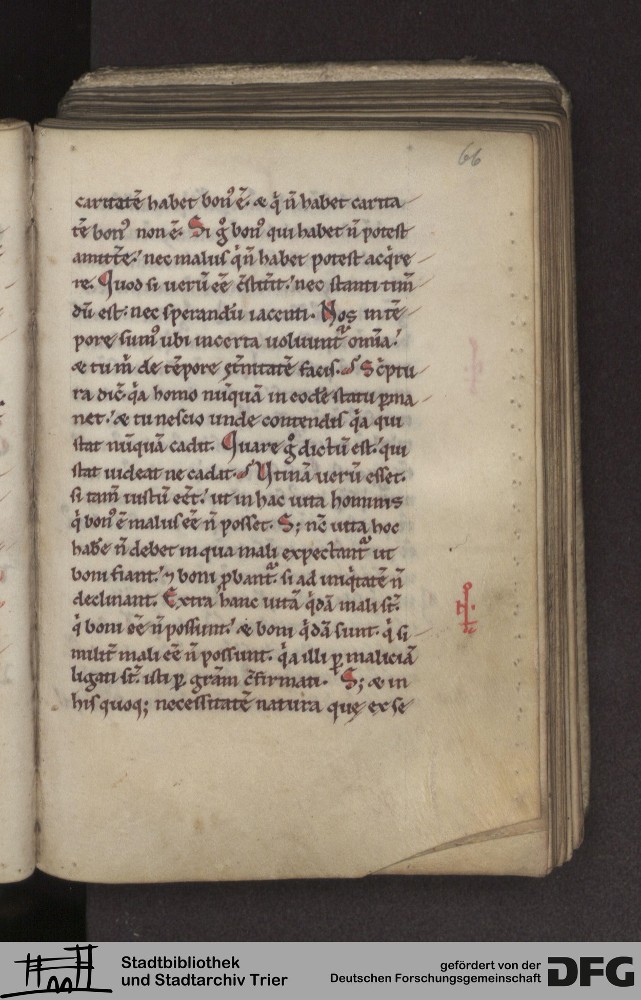 66
caritatē habet bonꝰ ē. & q̇ n̄ habet carita
tē bonꝰ non ē. Si gͦ bonꝰ qui habet n̄ potest
amitte͛. nec malus q̇ n̄ habet potest acq̇re
re. Quod si uerū eē c̄stit͛it. nec stanti tim̄
dū est. nec sperandū iacenti. Nos in tē
pore sumꝰ ubi incerta uoluunt᷑ om̄ia.
& tu m̄ de tēpore et͛nitatē facis. Sc͛ptu
ra dic̄. q̇a homo nūquā in eodē statu ꝑma
net. & tu nescio unde contendis q̇a qui
stat nūquā cadit. Quare gͦ dictū est. qui
stat uideat ne cadat. Utinā uerū esset.
si tam̄ iustū eēt. ut in hac uita hominis
q̇ bonꝰ ē malus eē n̄ posset. S; nc̄ uita hoc
habe͛ n̄ debet in qua mali expectant᷑ ut
boni fiant. ⁊ boni ꝓbant᷑. si ad iniq̇tatē n̄
declinant. Extra hanc uitā q̇dā mali st̄.
q̇ boni eē n̄ possunt. & boni q̇dā sunt. q̇ si
milit͛ mali eē n̄ possunt. q̇a illi ꝑ maliciā
ligati st̄. isti ꝑ gr̄am c̄firmati. S; & in
his quoq; necessitatē natura quę ex se
Stadtbibliothek
und Stadtarchiv Trier
gefördert von der
Deutschen Forschungsgemeinschaft
DFG